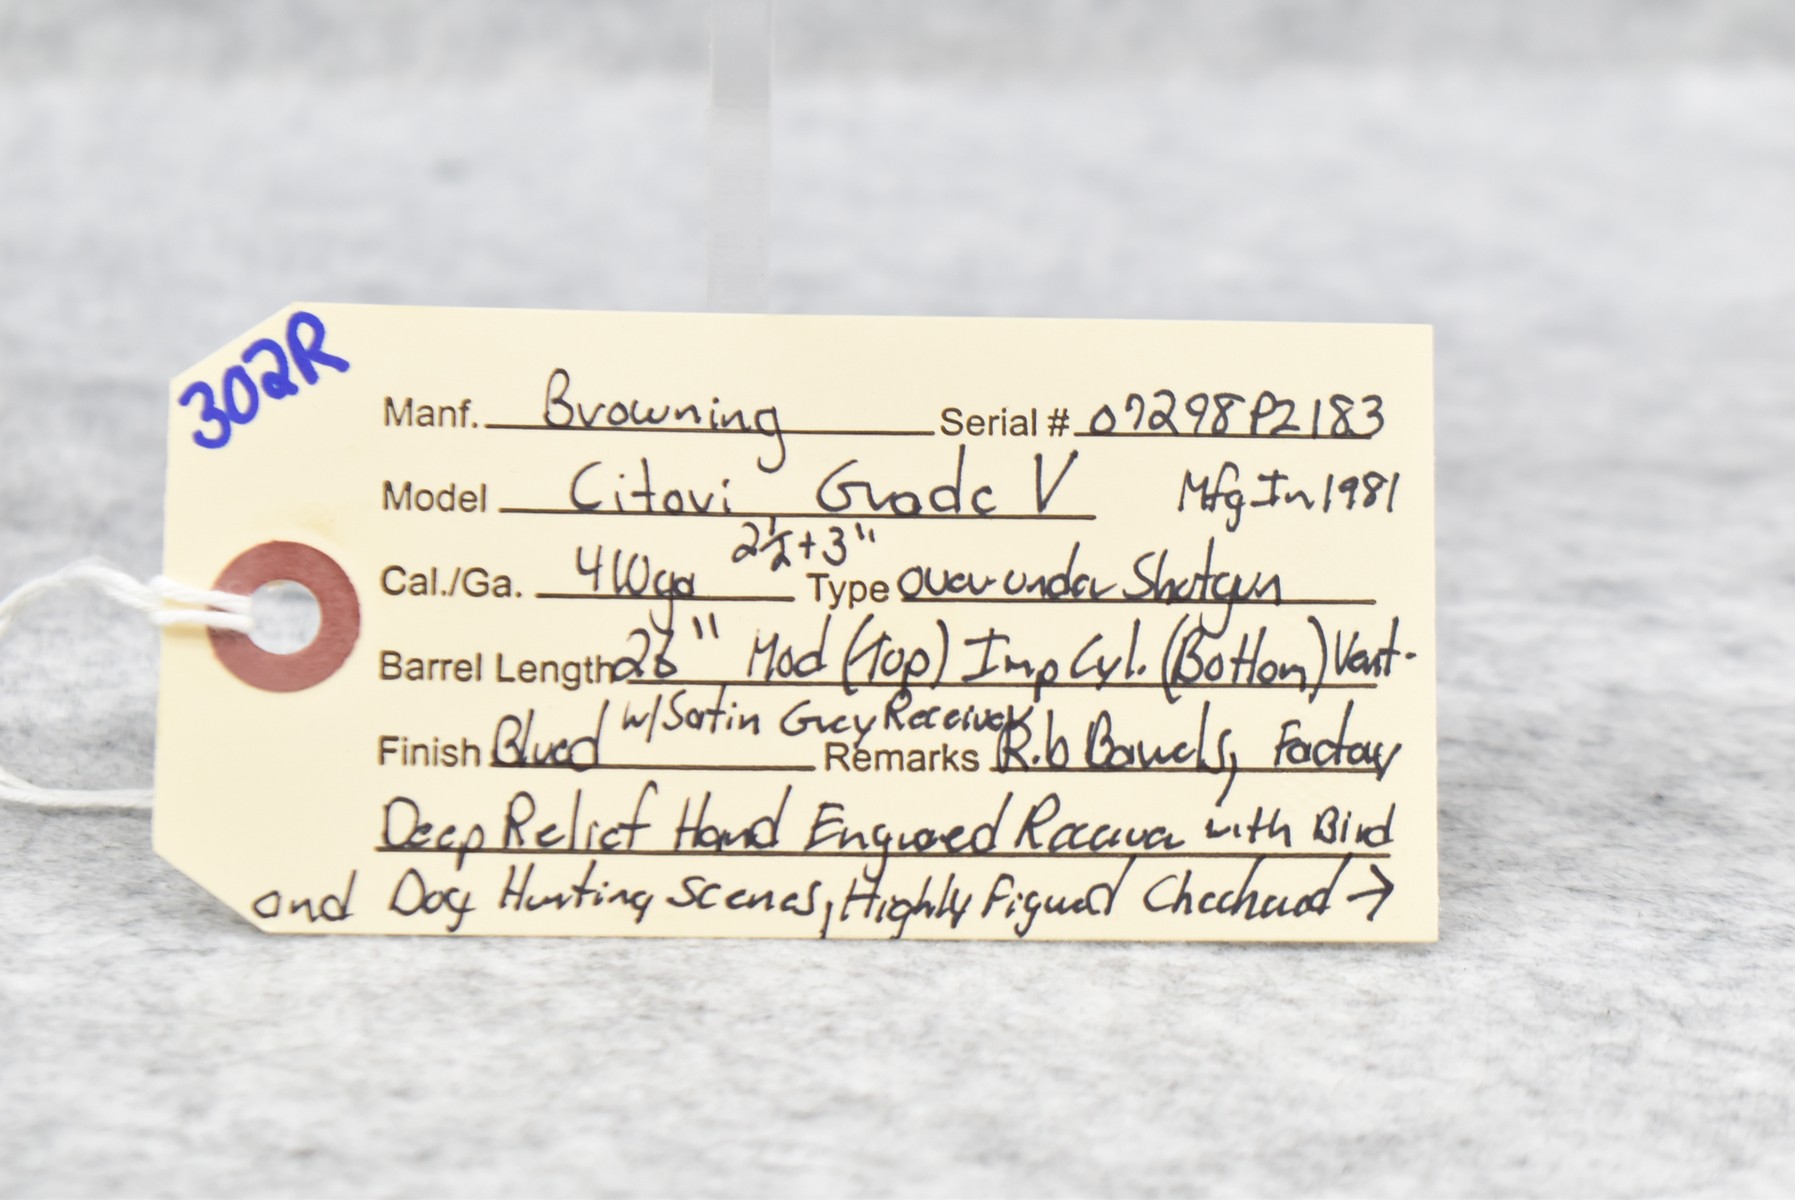 302R
Manf. Browning Serial # 07298PZ183
Model Citori Grade V Mfg In 1981
2½+3"
Cal./Ga. 410ga Type Over under Shotgun
Barrel Length 26" Mod (Top) Imp Cyl. (Bottom) Vent-
w/ Satin Grey Receiver
Finish Blued Remarks Rib Barrels, Factory
Deep Relief Hand Engraved Receiver with Bird
and Dog Hunting Scenes, Highly Figured Checkered →